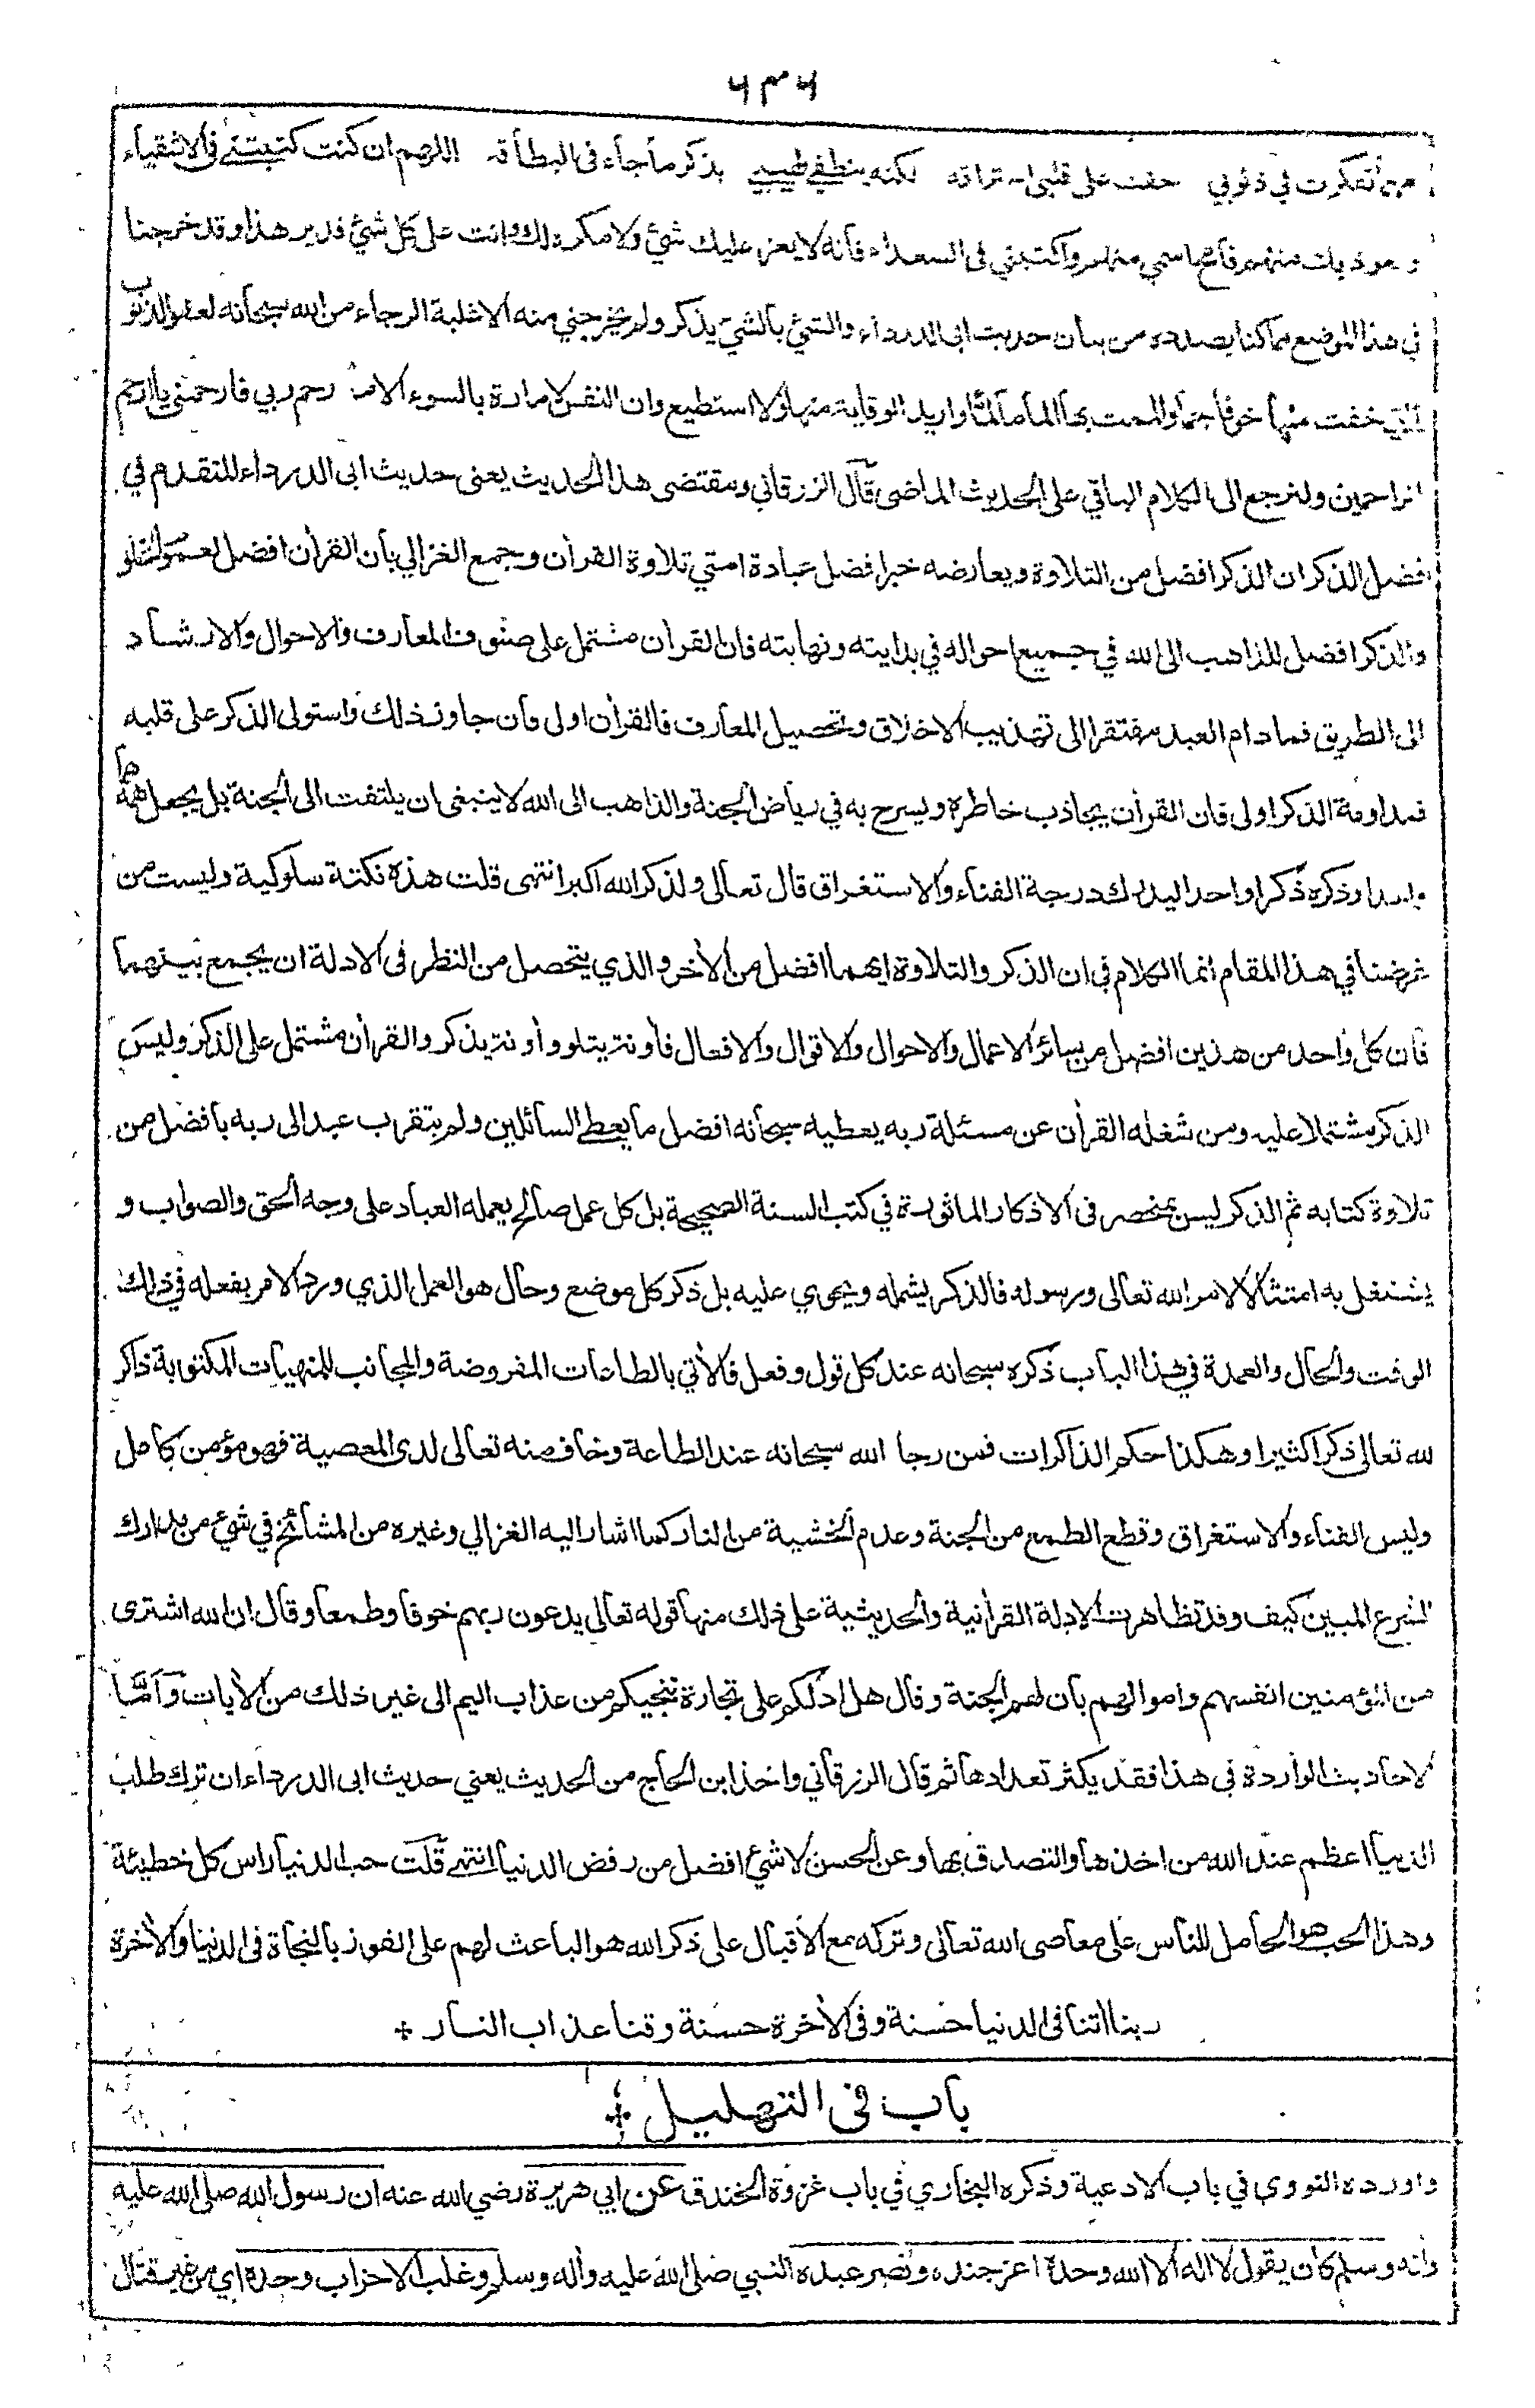 ٦٣٦
مهما تفكرت في ذنوبي خفت على قلبي احتراقه لكنه ينطفي لهيبي بذكر ما جاء في البطاقه اللهم ان كنت كتبتني في الاشقياء
منهم فامح اسمي منهم واكتبني في السعداء فانه لا يعز عليك شئ ولا مكره لك وانت على كل شئ قدير هذا وقد خرجنا
في هذا الموضع مما كنا بصدده من بيان حديث ابى الدرداء والشئ بالشئ يذكر ولم يخرجني منه الا غلبة الرجاء من الله سبحانه لعفو الذنوب
التي خفت منها خوفا جما والممت بها الماما لما واريد الوقاية منها ولا استطيع وان النفس لامارة بالسوء الا ما رحم ربي فارحمني يا ارحم
الراحمين ولنرجع الى الكلام الباقي على الحديث الماضى قال الزرقاني ومقتضى هذا الحديث يعنى حديث ابى الدرداء المتقدم في
فضل الذكر ان الذكر افضل من التلاوة ويعارضه خبر افضل عبادة امتي تلاوة القرأن وجمع الغزالي بأن القرأن افضل لعموم الخلق
والذكر افضل للذاهب الى الله في جميع احواله في بدايته ونهايته فان القرأن مشتمل على صنوف المعارف والاحوال والارشاد
الى الطريق فما دام العبد مفتقرا الى تهذيب الاخلاق وتحصيل المعارف فالقرأن اولى فان جاوز ذلك واستولى الذكر على قلبه
فمداومة الذكر اولى فان القرأن يجاذب خاطره ويسرح به في رياض الجنة والذاهب الى الله لا ينبغى ان يلتفت الى الجنة بل يجعل همه هما
واحدا وذكره ذكرا واحدا ليدرك درجة الفناء والاستغراق قال تعالى ولذكر الله اكبر انتهى قلت هذه نكتة سلوكية وليست من
غرضنا في هذا المقام انما الكلام في ان الذكر والتلاوة ايهما افضل من الأخر والذي يتحصل من النظر في الادلة ان يجمع بينهما
فان كل واحد من هذين افضل من سائر الاعمال والاحوال والاقوال والافعال فأونة يتلو وأونة يذكر والقرأن مشتمل على الذكر وليس
الذكر مشتملا عليه ومن شغله القرأن عن مسئلة ربه يعطيه سبحانه افضل ما يعطي السائلين ولم يتقرب عبد الى ربه بأفضل من
تلاوة كتابه ثم الذكر ليس بمنحصر في الاذكار الماثورة في كتب السنة الصحيحة بل كل عمل صالح يعمله العباد على وجه الحق والصواب و
يشتغل به امتثالا لامر الله تعالى ورسوله فالذكر يشمله ويحوي عليه بل ذكر كل موضع وحال هو العمل الذي ورد الامر بفعله في ذلك
الوقت والحال والعمدة في هذا الباب ذكره سبحانه عند كل قول وفعل فالأتي بالطاعات المفروضة والمجانب للمنهيات المكتوبة ذاكر
لله تعالى ذكرا كثيرا وهكذا حكم الذاكرات فمن رجا الله سبحانه عند الطاعة وخاف منه تعالى لدى المعصية فهو مؤمن كامل
وليس الفناء والاستغراق وقطع الطمع من الجنة وعدم الخشية من النار كما اشار اليه الغزالي وغيره من المشائخ في شئ من مدارك
الشرع المبين كيف وقد تظاهرت الادلة القرأنية والحديثية على ذلك منها قوله تعالى يدعون ربهم خوفا وطمعا وقال ان الله اشترى
من المؤمنين انفسهم واموالهم بأن لهم الجنة وقال هل ادلكم على تجارة تنجيكم من عذاب اليم الى غير ذلك من الأيات وأما
الاحاديث الواردة في هذا فقد يكثر تعدادها ثم قال الزرقاني واخذ ابن الحاج من الحديث يعني حديث ابى الدرداء ان ترك طلب
الدنيا اعظم عند الله من اخذها والتصدق بها وعن الحسن لا شئ افضل من رفض الدنيا انتهى قلت حب الدنيا راس كل خطيئة
وهذا الحب هو الحامل للناس على معاصى الله تعالى وتركه مع الاقبال على ذكر الله هو الباعث لهم على الفوز بالنجاة في الدنيا والأخرة
ربنا اتنا في الدنيا حسنة وفي الأخرة حسنة وقنا عذاب النار +
باب في التهليل +
واورده النووي في باب الادعية وذكره البخاري في باب غزوة الخندق عن ابي هريرة رضي الله عنه ان رسول الله صلى الله عليه
وأله وسلم كان يقول لا اله الا الله وحده اعز جنده ونصر عبده النبي صلى الله عليه وأله وسلم وغلب الاحزاب وحده اي من غير قتال